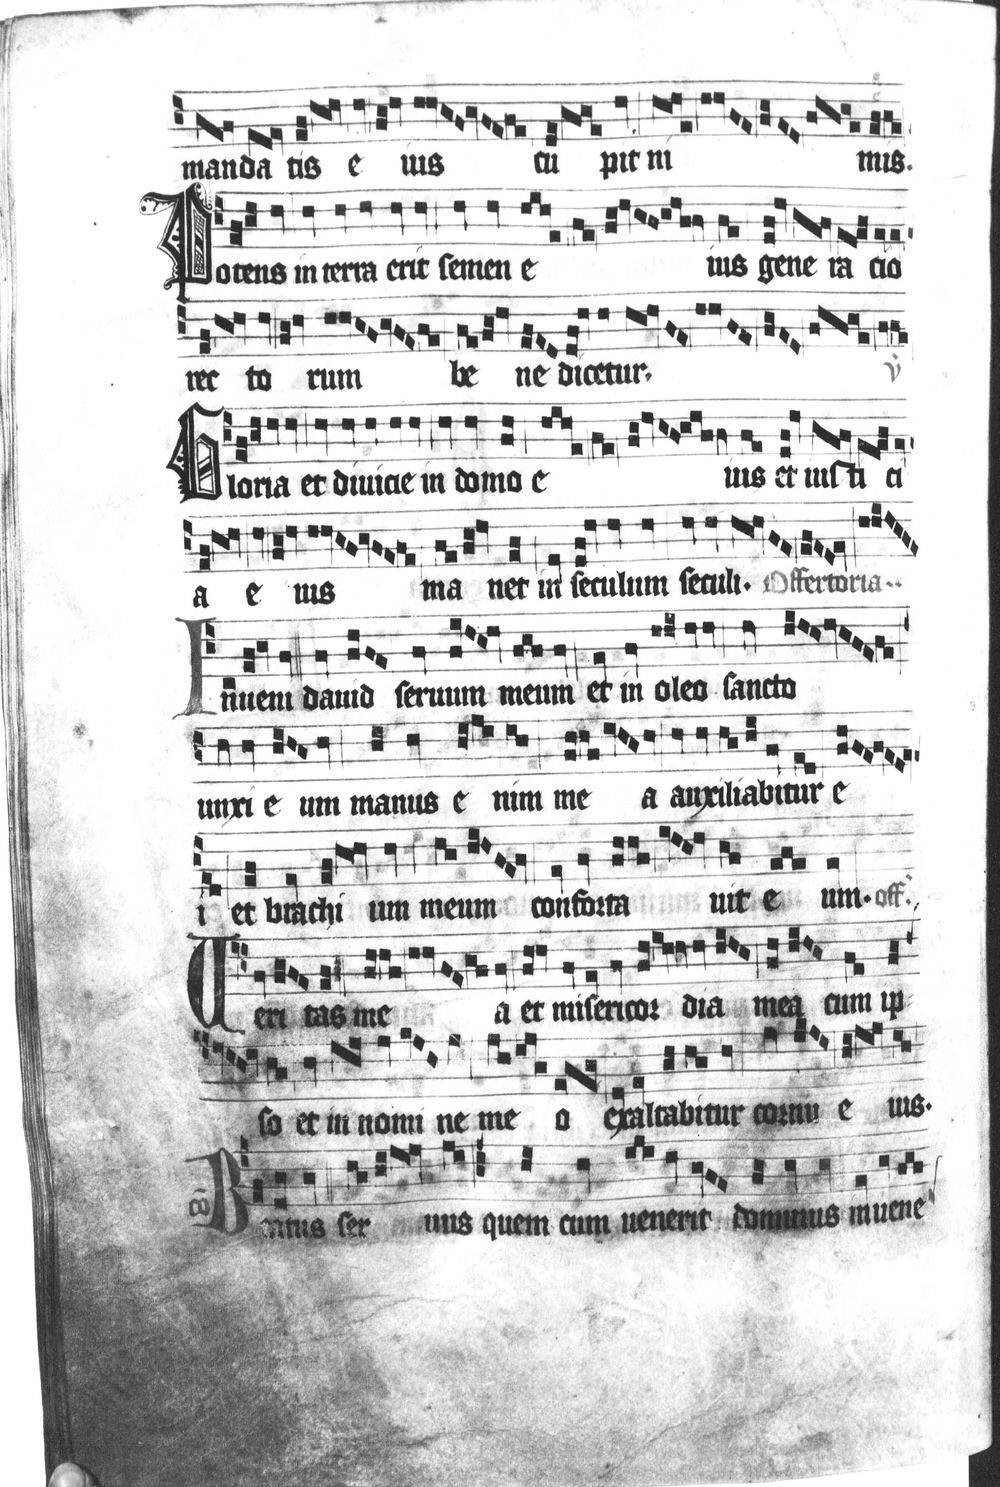 manda tis e ius cu pit ni mis.
Potens in terra erit semen e ius gene ra cio
rec to rum be ne dicetur. v
Gloria et diuicie in domo e ius et iusti ci
a e ius ma net in seculum seculi. Offertoria..
Inueni dauid seruum meum et in oleo sancto
unxi e um manus e nim me a auxiliabitur e
i et brachi um meum conforta uit e um. off.
Veri tas me a et misericor dia mea cum ip
so et in nomi ne me o exaltabitur cornu e ius.
co Beatus ser uus quem cum uenerit dominus inuene